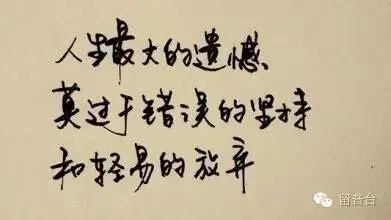 人生最大的遗憾、
莫过于错误的坚持
和轻易的放弃
留音台